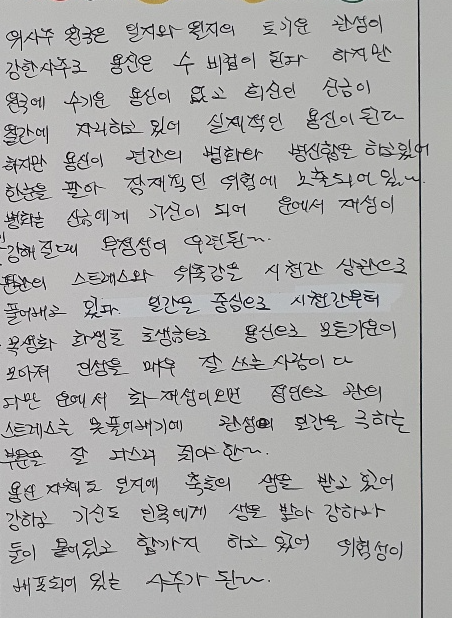 위사주 원국은 일지와 월지의 토기운 관성이
강한사주로 용신은 수 비겁이 된다 하지만
원국에 수기운 용신이 없고 희신인 신금이
월간에 자리하고 있어 실제적인 용신이 된다
하지만 용신이 년간의 병화와 병신합을 하고있어
한눈을 팔아 잠재적인 위험에 노출되어 있다.
병화는 신금에게 기신이 되어 운에서 재성이
강해질때 투정성이 우려된다.
스트레스와 위축감을 시천간 상관으로
풀어내고 있다 일간을 중심으로 시천간부터
목생화 화생토 토생금으로 용신으로 모든기운이
모아져 인성을 매우 잘 쓰는 사람이다
다만 운에서 화재성이오면 편인으로 관의
스트레스는 못풀어내기에 관성의 일간을 극하는
부분을 잘 다스려 줘야 한다.
용신 자체도 일지에 축토의 생을 받고 있어
강하고 기신도 인목에게 생을 받아 강하나
둘이 붙어있고 합까지 하고 있어 위험성이
배포되어 있는 사주가 된다.